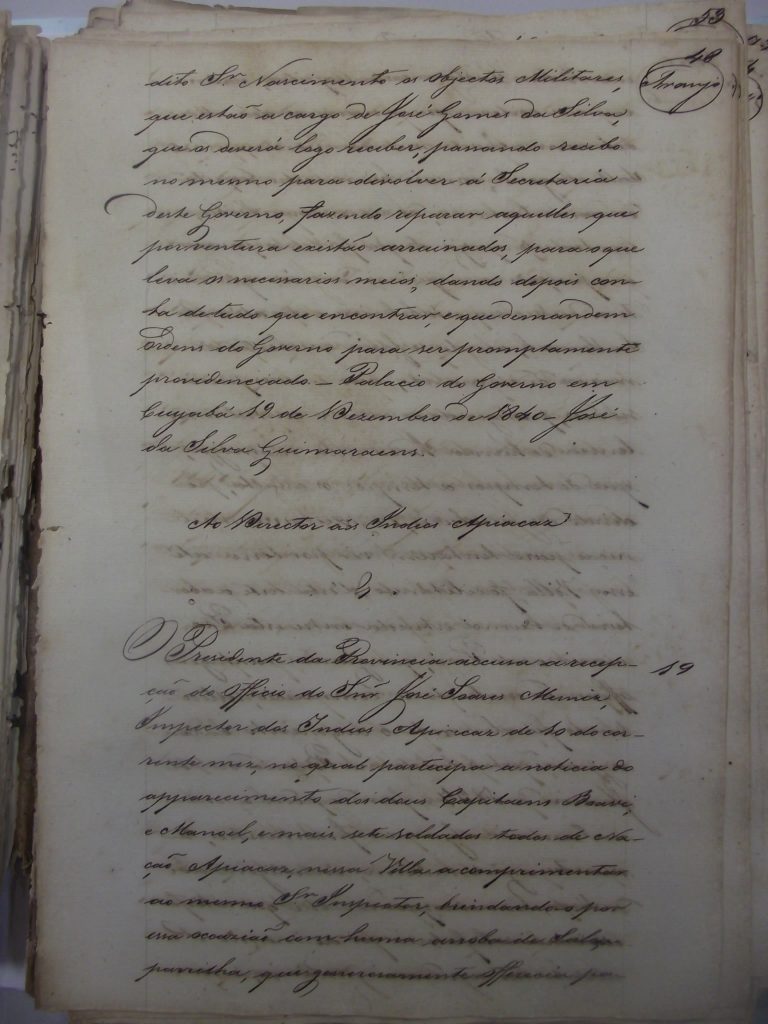 53
48
Araujo
dito Sr. Nascimento os objectos Militares,
que estaõ a cargo de José Gomes da Silva,
que os deverá logo receber, passando recibo
no mesmo para divolver á Secretaria
deste Governo, fazendo reparar aquelles que
porventura existaõ arruinados, para o que
leva os necessarios meios, dando depois con-
ta de tudo que encontrar, e que demandem
Ordens do Governo para ser promptamente
providenciado _ Palacio do Governo em
Cuyabá 19 de Dezembro de 1840 _ José
da Silva Guimaraens.
Ao Director dos Indios Apiacaz
O Presidente da Provincia accusa a recep- 19
ção do Officio do Snr. José Soares Muniz,
Inspector dos Indios Apiacaz de 10 do cor-
rente mez, no qual partecipa a noticia do
apparecimento dos dous Capitaens
e Manoel, e mais sete soldados todos de Na-
ção Apiacaz, nessa Villa a comprimentar
ao mesmo Sr. Inspector, brindando-o por
essa occaziaõ com huma arroba de Salsa
parrilha, que generosamente offerecia pa-